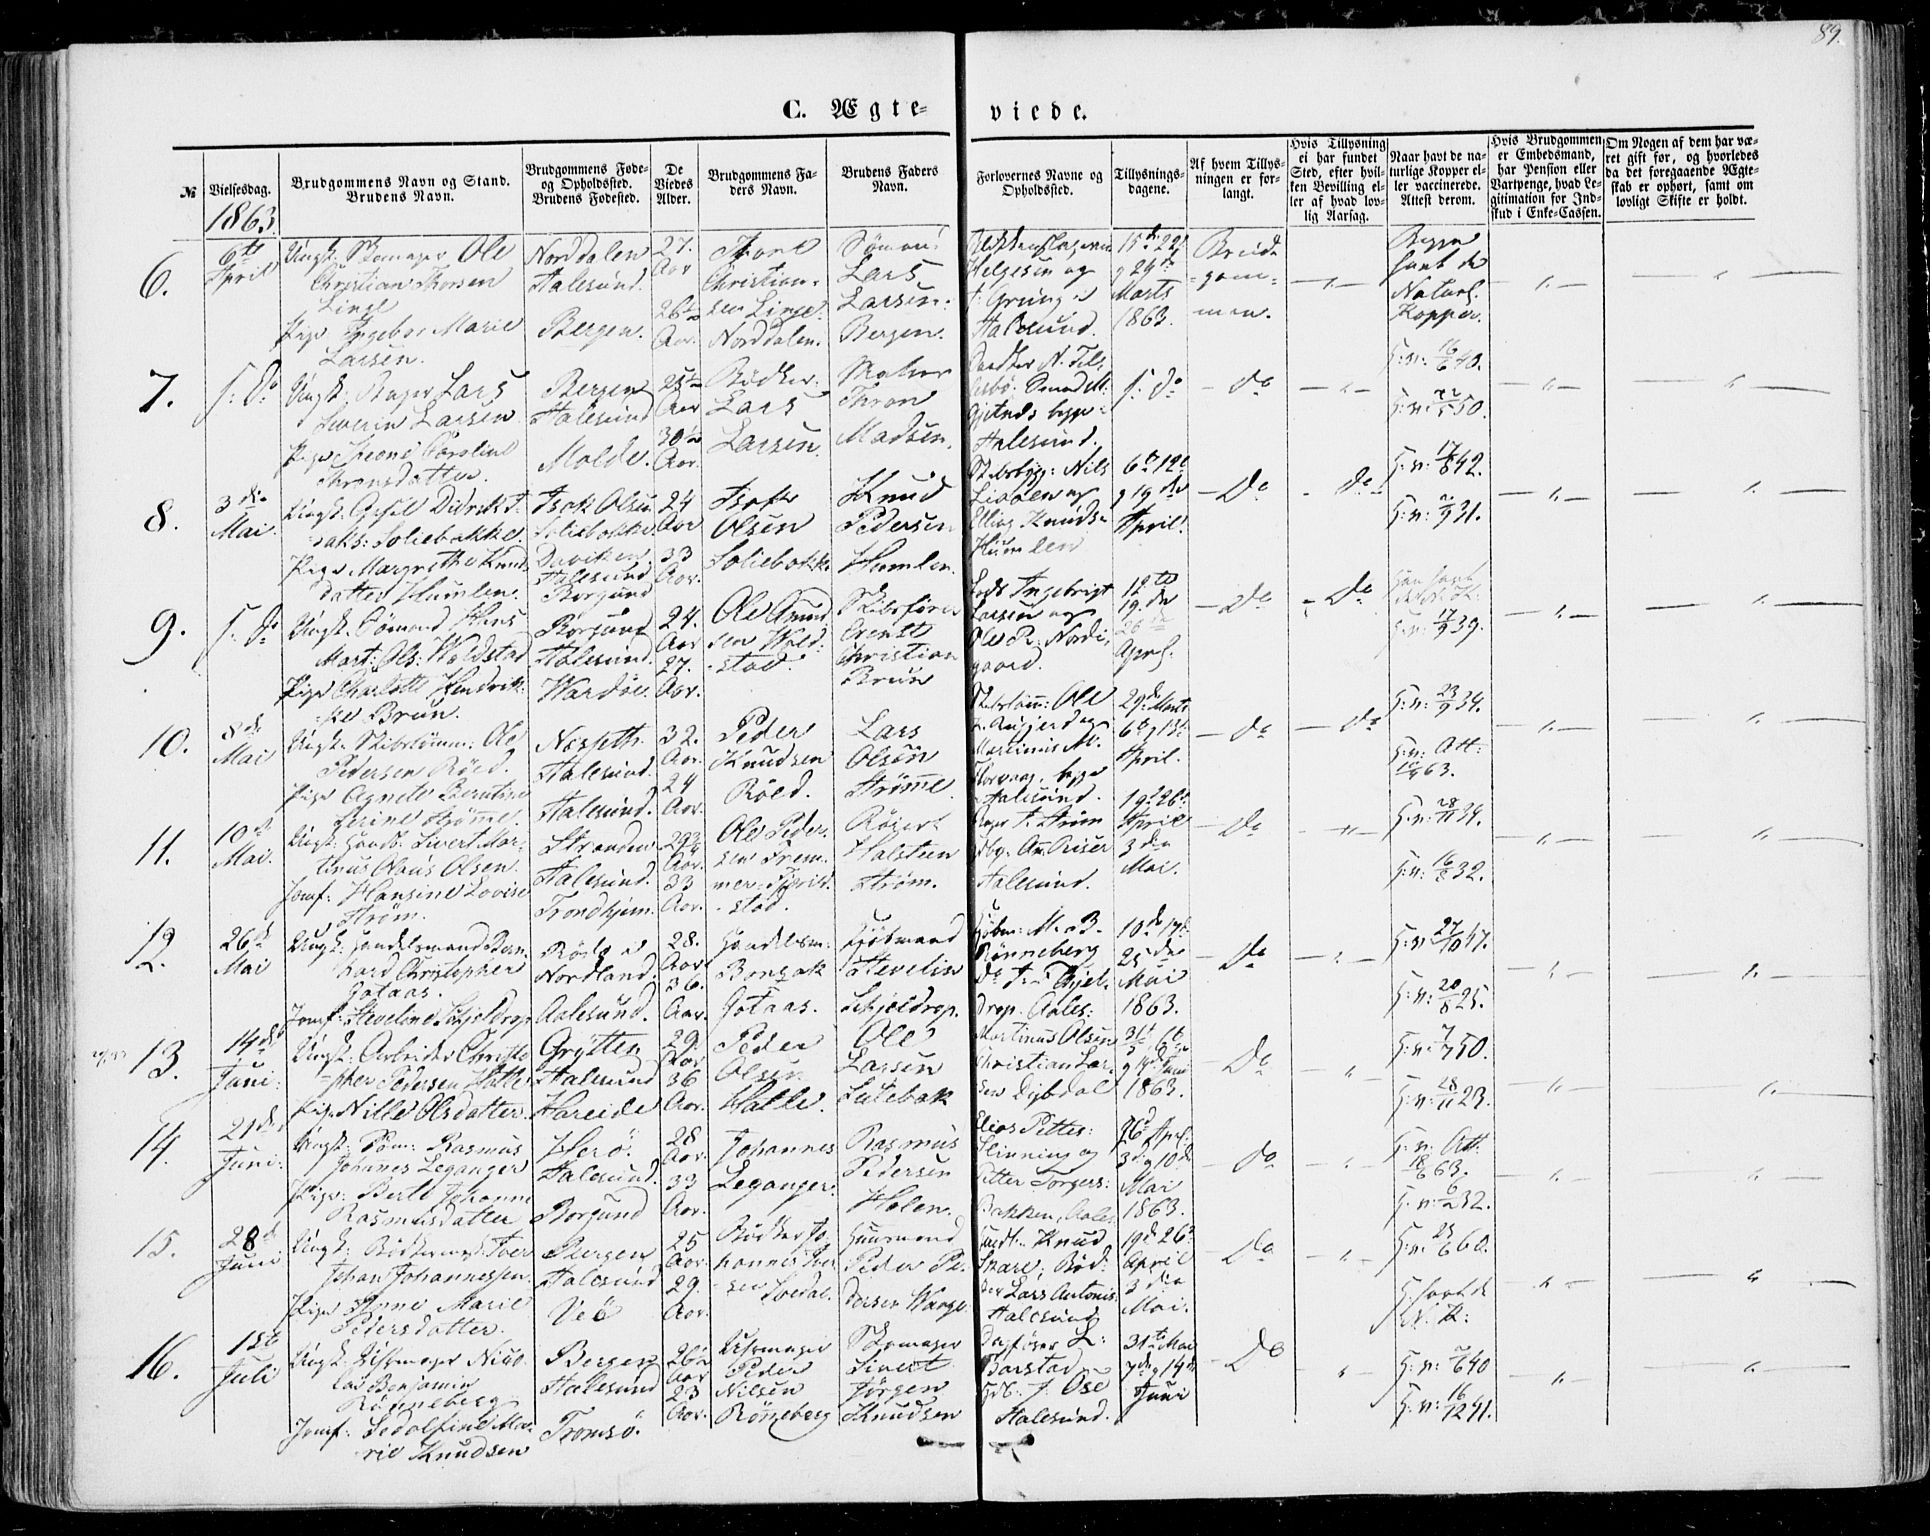 89.
C. Ægte- viede.
№
Vielsesdag.
Brudgommens Navn og Stand.
Brudens Navn.
Brudgommens Føde-
og Opholdssted.
Brudens Fødested.
De
Viedes
Alder.
Brudgommens Fa-
ders Navn.
Brudens Faders
Navn.
Forlovernes Navne og
Opholdssted.
Tillysnings-
dagene.
Af hvem Tillys-
ningen er for-
langt.
Hvis Tillysning
ei har fundet
Sted, efter hvil-
ken Bevilling el-
ler af hvad lov-
lig Aarsag.
Naar havt de na-
turlige Kopper el-
ler vaccinerede.
Attest derom.
Hvis Brudgommen
er Embedsmand,
har Pension eller
Vartpenge, hvad Le-
gitimation for Ind-
skud i Enke-Cassen.
Om Nogen af dem har væ-
ret gift før, og hvorledes
da det foregaaende Ægte-
skab er ophørt, samt om
lovligt Skifte er holdt.
1863
6.
6te
April
Ungk. Skomager Ole
Christian Thorsen
Linge
Pige Ingebor Marie
Larsen.
Norddalen
Aalesund.
Bergen.
27.
Aar
26½
Aar.
Thore
Christian-
sen Linge.
Norddalen.
Lars
Larsen.
Bergen.
Helgesen og
Aalesund.
15de 22de
og 29de
Marts
1863.
Brud-
gom-
men.
Begge
havt de
Naturl.
Kopper.
7.
s: D:
Ungk: Bager Lars
Severin Larsen
Pige Leone Caroline
Thronsdatter.
Bergen
Aalesund
Molde.
25½
Aar
30½
Aar.
Bødker
Lars
Larsen.
Maler
Thron
Madsen.
begge
Aalesund.
s: Do
Do
G: v: 16/6 40.
G: v: 22/5 50.
8.
3die
Mai.
Ungk: Axsel Didrik I-
saks: Soliebakke.
Pige Margrethe Knud-
datter Humlen.
Isak Olsen
Soliebakke
Daviken
Aalesund
Borgund
24
Aar
33
Aar.
Isak
Olsen
Soliebakk.
Knud
Pedersen
Humlen.
Skibsbygg: Nils
Elling Knudsen
Humlen
6te 12te
og 19de
April.
Do
Do
G: v: 17/8 42.
G: v: 2/9 31.
9.
s: Do
Ungk. Sømand Hans
Mart: Ols: Woldstad
Pige Charlotte Hendrik-
ke Brun.
Borgund
Aalesund.
Wardøe.
24.
Aar
27.
Aar.
Ole Amund-
sen Wold-
stad.
Skibsfører
Erenst
Christian
Brun
Lods Ingebrigt
Larsen og
Ole R: Nord-
gaard.
12te
19de
26de
April.
Do
Do
G: v: 17/9 39.
10.
8de
Mai
Ungk. Skibstømm: Ole
Pedersen Røed.
Pige Agnete Berntine
Serine Strømme.
Næsseth.
Aalesund.
Aalesund.
32.
Aar.
24
Aar.
Peder
Knudsen
Røed.
Lars
Olsen
Strømme.
Skibstømm: Ole
begge
Aalesund.
29de Marts
6te og 13de
April.
Do
Do
G: v: 23/9 34.
G: v: Att:
63.
11.
10de
Mai.
Ungk. Handb. Sivert Mar-
tinus Olaus Olsen.
Jomf: Hansine Lovise
Strøm.
Stranden
Aalesund.
Trondhjem.
29¾
Aar.
33
Aar.
Ole Peder-
sen Frem-
stad.
Røiert
Halsteen
Strøm.
Aalesund.
19de 26de
April
3die
Mai.
Do
G: v: 28/11 34.
G: v: 16/8 32.
12.
26de
Mai
Ungk: Handelsmand Bern-
hard Christopher
Gotaas.
Jomf: Steveline Schjeldrop
Rødø i
Nordland.
Aalesund.
28.
Aar
36.
Aar.
Handelsm:
Bonsak
Gotaas.
Kjøbmand
Stevelin
Schjeldrop.
Kjøbm: M. B.
Rønneberg
Do A. Schjel-
drop. Aales:
10de 17de
25de
Mai
1863.
Do
G: v: 27/10 47.
G: v: 20/8 25.
13.
14de
Juni.
Ungk: Arbeider Christo-
pher Pedersen Halle
Pige Nille Olsdatter.
Grytten
Aalesund
Hareide
29.
Aar
36
Aar.
Peder
Olsen
Halle.
Ole
Larsen
Liadebak
Martinus Olsen
Christian Lar-
sen Dybdal
31te 6te
og 14de Juni
1863.
Do
G: v: 7/7 50.
G: v: 28/11 23.
14.
21de
Juni.
Ungk: Søm: Rasmus
Johanes Leganger
Pige: Berte Johanne
Rasmusdatter
Herø.
Aalesund.
Borgund
28
Aar.
33
Aar.
Johannes
Leganger.
Rasmus
Pedersen
Holen.
Elias Petter
Slinning og
Petter Torgers:
Bakken, Aales.
26de April.
3die og 10de
Mai
1863.
Do
G: v: Att.
18/6 63.
G: v: 6/2 32.
15.
28de
Juni
Ungk: Bødkermest: Iver
Johan Johannessen.
Pige Anne Marie
Pedersdatter.
Bergen
Aalesund
Veø
25
Aar.
29.
Aar.
Bødker Jo-
hannes Iver-
sen
Huusmand
Peder Pe-
dersen
Handl: Knud
Snare, Bød-
ker Lars Antonis:
Aalesund
19de 26de
April
3die
Mai.
Do
G: v: 25/6 60.
G: havt de
N. K:
16.
15te
Juli
Ungk. Uhrmager Nico-
lai Benjamin
Rønneberg
Jomf: Sedolfine Ma-
rie Knudsen
Bergen
Aalesund
Tromsø.
26½
Aar
23
Aar.
Uhrmager
Peder
Nilsen
Rønneberg
Skomager
Sivert
Jørgen
Knudsen
L:
Barstad
Hdb. J. Ose
Aalesund.
31te Mai
7de og 14de
Juni
Do
G: v: 7/6 40
G: v: 16/12 41.